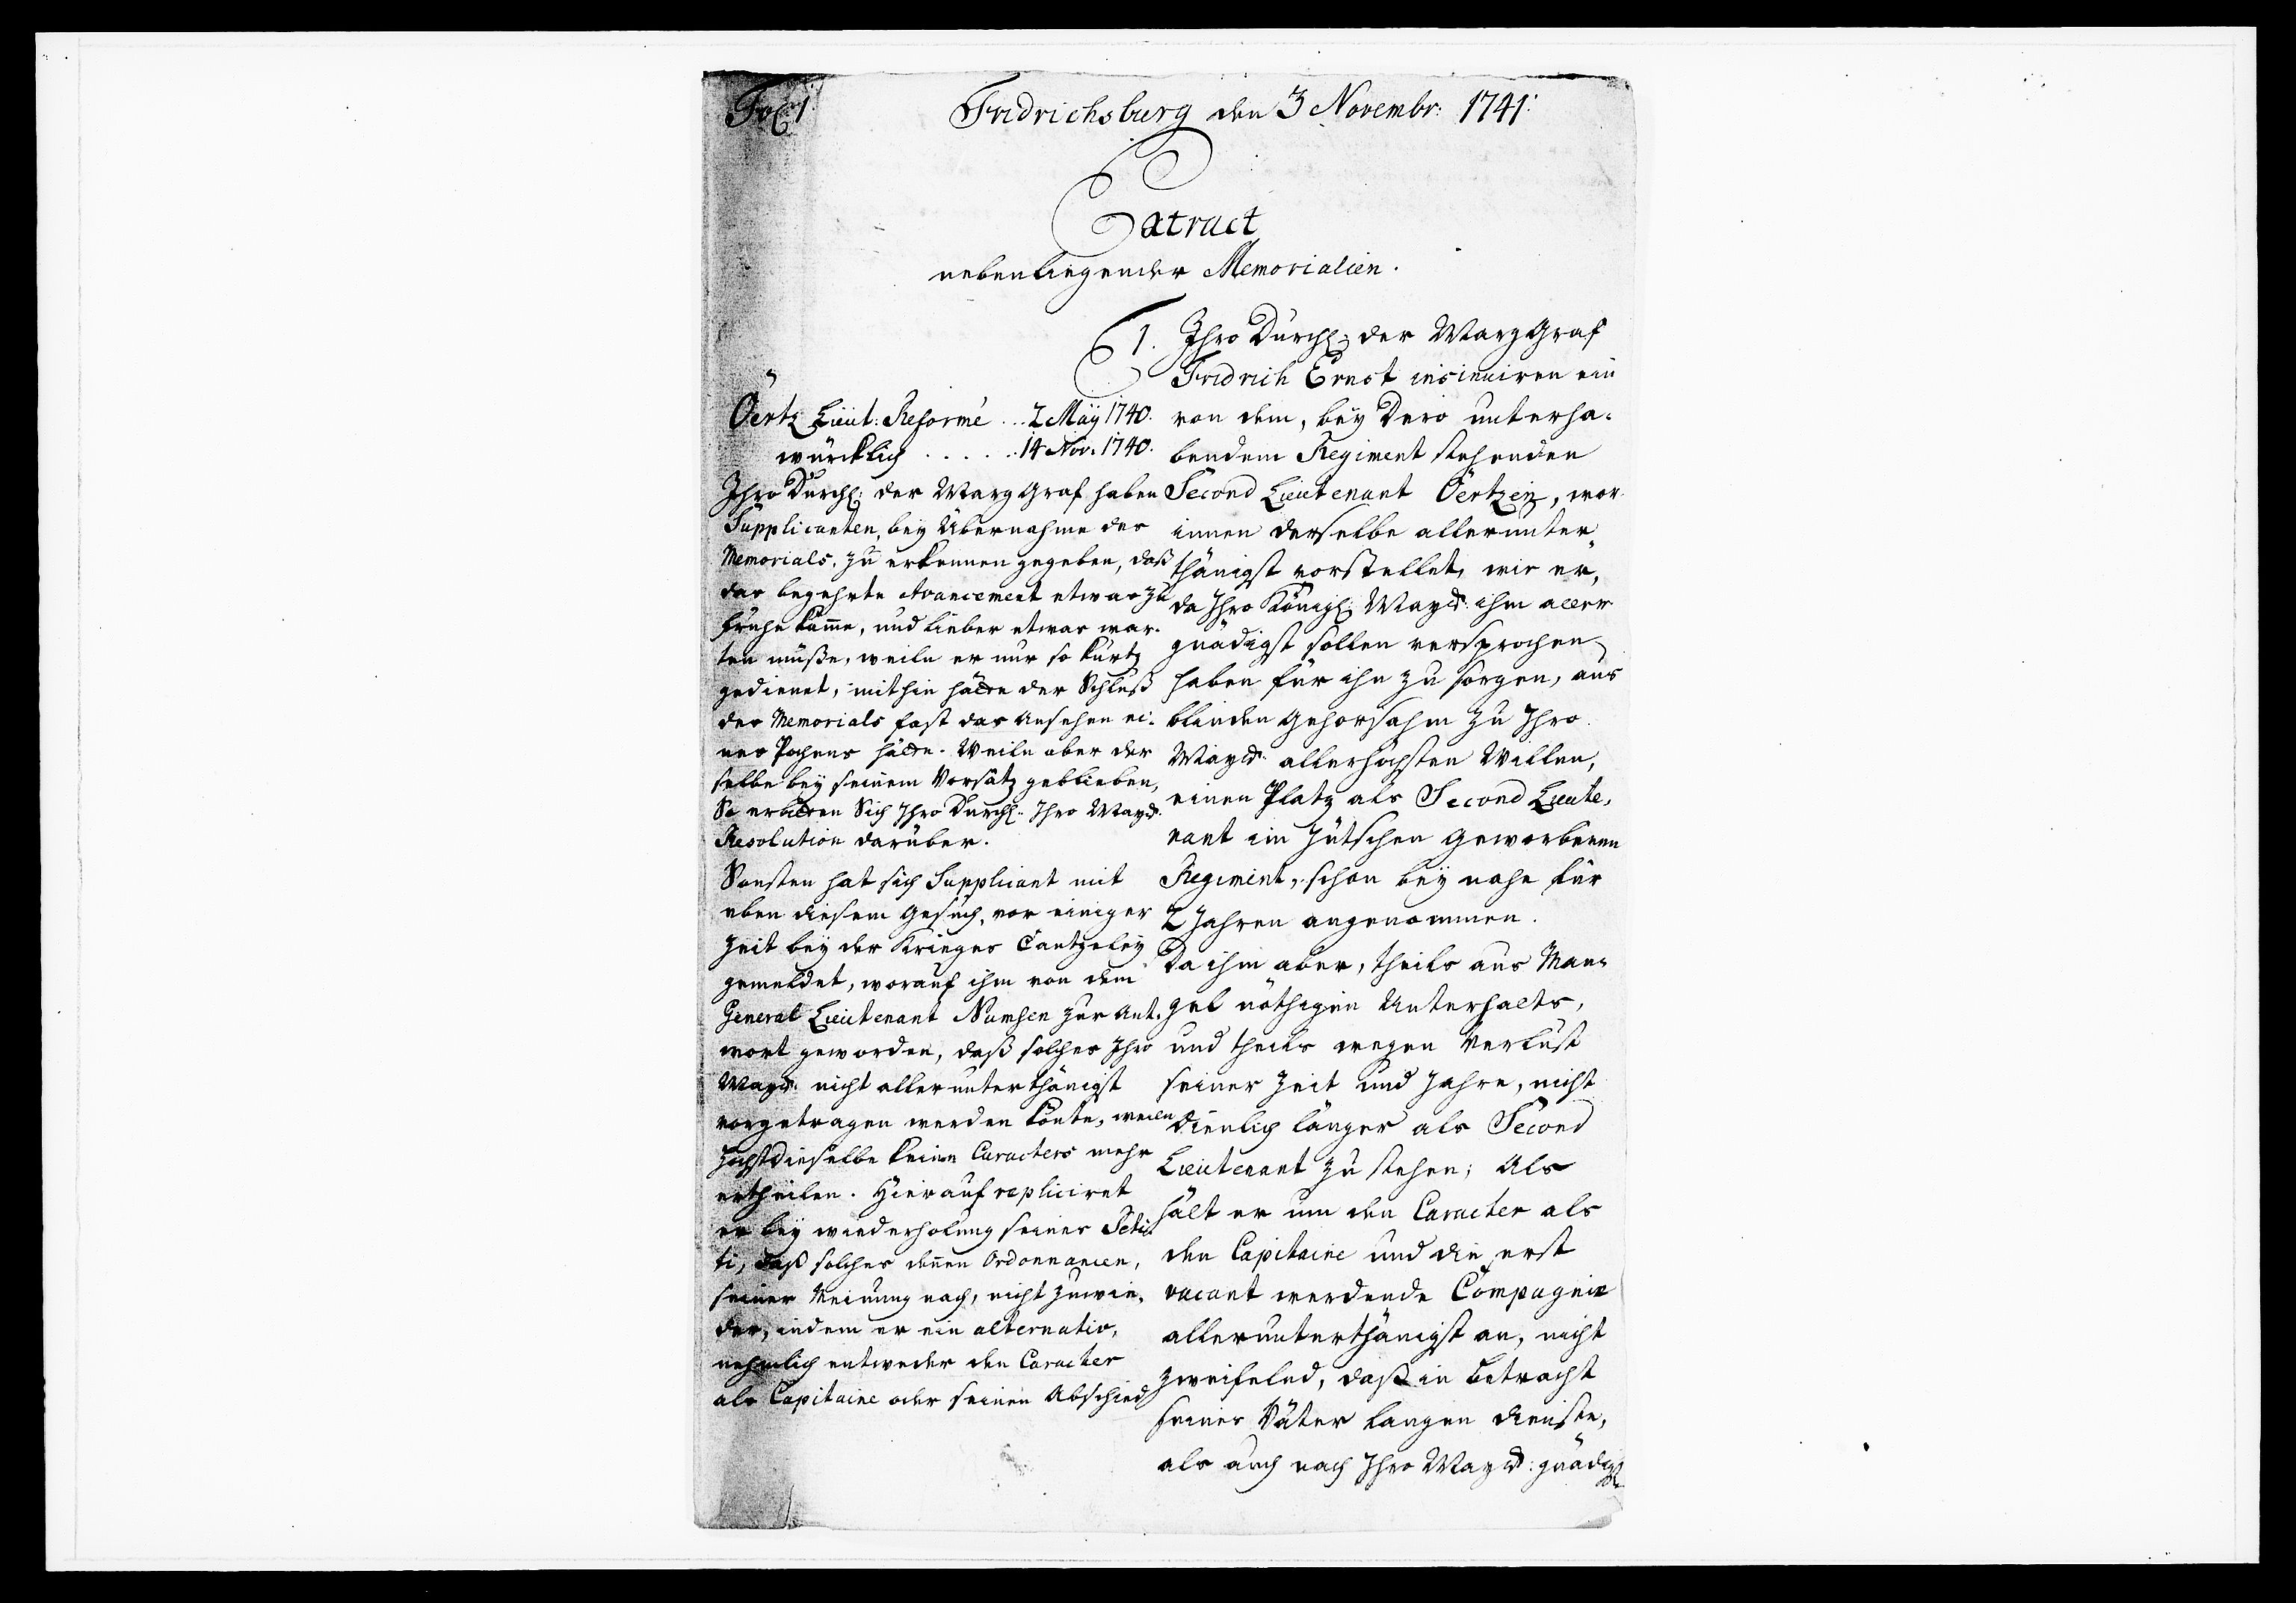 Fol: 1
Fridrichsburg den 3 Novembr: 1741:
Extract
nebenliegender Memorialien.
1. Ihro Durchl: der Marggraf
Fridrich Ernst insinuiren ein
von dem, bey Dero unterha-
bendem Regiment stehenden
Second Lieutenant Öertzen, wor
innen derselbe allerunter-
thänigst vorstellet, wie er,
da Ihro Königl: Mayst: ihm aller
gnädigst sollen versprochen
haben für ihn zu sorgen, aus
blinden Gehorsahm zu Ihro
Mayst: allerhöchsten Willen,
einen Platz als Second Lieute-
nant im Jütschen Geworbenen
Regiment, schon bey nahe für
2 Jahren angenommen.
Da ihm aber, theils aus Man-
gel nöthigen Unterhalts,
und theils wegen Verlust
seiner Zeit und Jahre, nicht
dienlich länger als Second
Lieutenant zu stehen; Als
hält er um den Caracter als
den Capitaine und die erst
vacant werdende Compagnie
allerunterthänigst an, nicht
zweifelnd, daß in betracht
seines Väter langen dienste,
als auch nach Ihro Mayst: gnädigst
Öertz Lieut: Reformé ... 2 May 1740.
würcklich ..... 14 Nov. 1740.
Ihro Durchl: der Marggraf haben
Supplicanten, bey Übernahme des
Memorials, zu erkennen gegeben, daß
das begehrte Avancement etwas zu
frühe käme, und lieber etwas war-
ten müße, weiln er nur so kurtz
gedienet, mithin hätte der Schluß
des Memorials fast das Ansehen ei-
nes Pochens hätte. Weiln aber der
selbe bey seinem Vorsatz geblieben,
So erbitten Sich Ihro Durchl: Ihro Mayst:
Resolution darüber.
Sonsten hat sich Supplicant mit
eben diesem Gesuch, vor einiger
Zeit bey der Krieges Cantzeley
gemeldet, worauf ihm von dem
General Lieutenant Numsen zur Ant-
wort geworden, daß solches Ihro
Mayst: nicht allerunterthänigst
vorgetragen werden könte, weiln
Höchstdieselbe keine Caracters mehr
ertheilen. Hierauf repliciret
er bey wiederholung seines Petiti
ti, daß solches denen Ordonnancen,
seiner Meinung nach, nicht zuwie-
der, indem er ein alternativ,
nehmlich entweder den Caracter
als Capitaine oder seinen Abschied